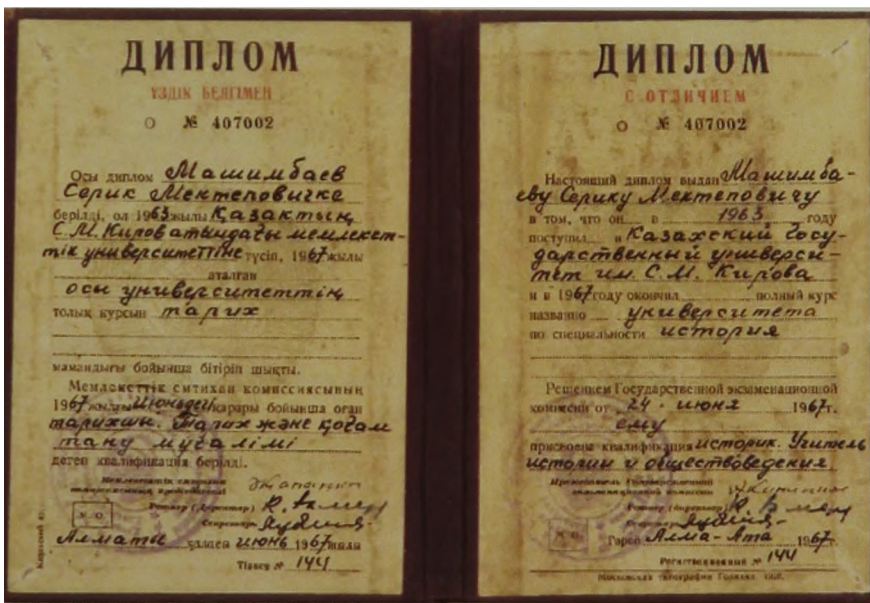 ДИПЛОМ
ҮЗДІК БЕЛГІМЕН
О № 407002
Осы диплом Машимбаев
Серик Мектеповичке
берілді, ол 1963 жылы Қазақтың
С.М. Киров атындағы мемлекет-
тік университетіне түсіп, 1967 жылы
аталған
осы университеттің
толық курсын тарих
мамандығы бойынша бітіріп шықты.
Мемлекеттік емтихан комиссиясының
1967 жылғы июньдегі қарары бойынша оған
тарихшы. Тарих және қоғам
тану мұғалімі
деген квалификация берілді.
Ректор (Директор)
Секретарь
Алматы қаласы июнь 1967 жыл
Тіркеу № 144
ДИПЛОМ
С ОТЛИЧИЕМ
О № 407002
Настоящий диплом выдан Машимба-
еву Серику Мектеповичу
в том, что он в 1963 году
поступил в Казахский Госу-
дарственный универси-
тет им. С.М. Кирова
и в 1967 году окончил полный курс
названного университета
по специальности история
Решением Государственной экзаменационной
комиссии от 24 июня 1967 г.
ему
присвоена квалификация историк. Учитель
истории и обществоведения
Председатель Государственной
экзаменационной комиссии
Ректор (Директор)
Секретарь
М. П.
Город Алма-Ата 1967 г.
Регистрационный № 144
Московская типография Гознака.